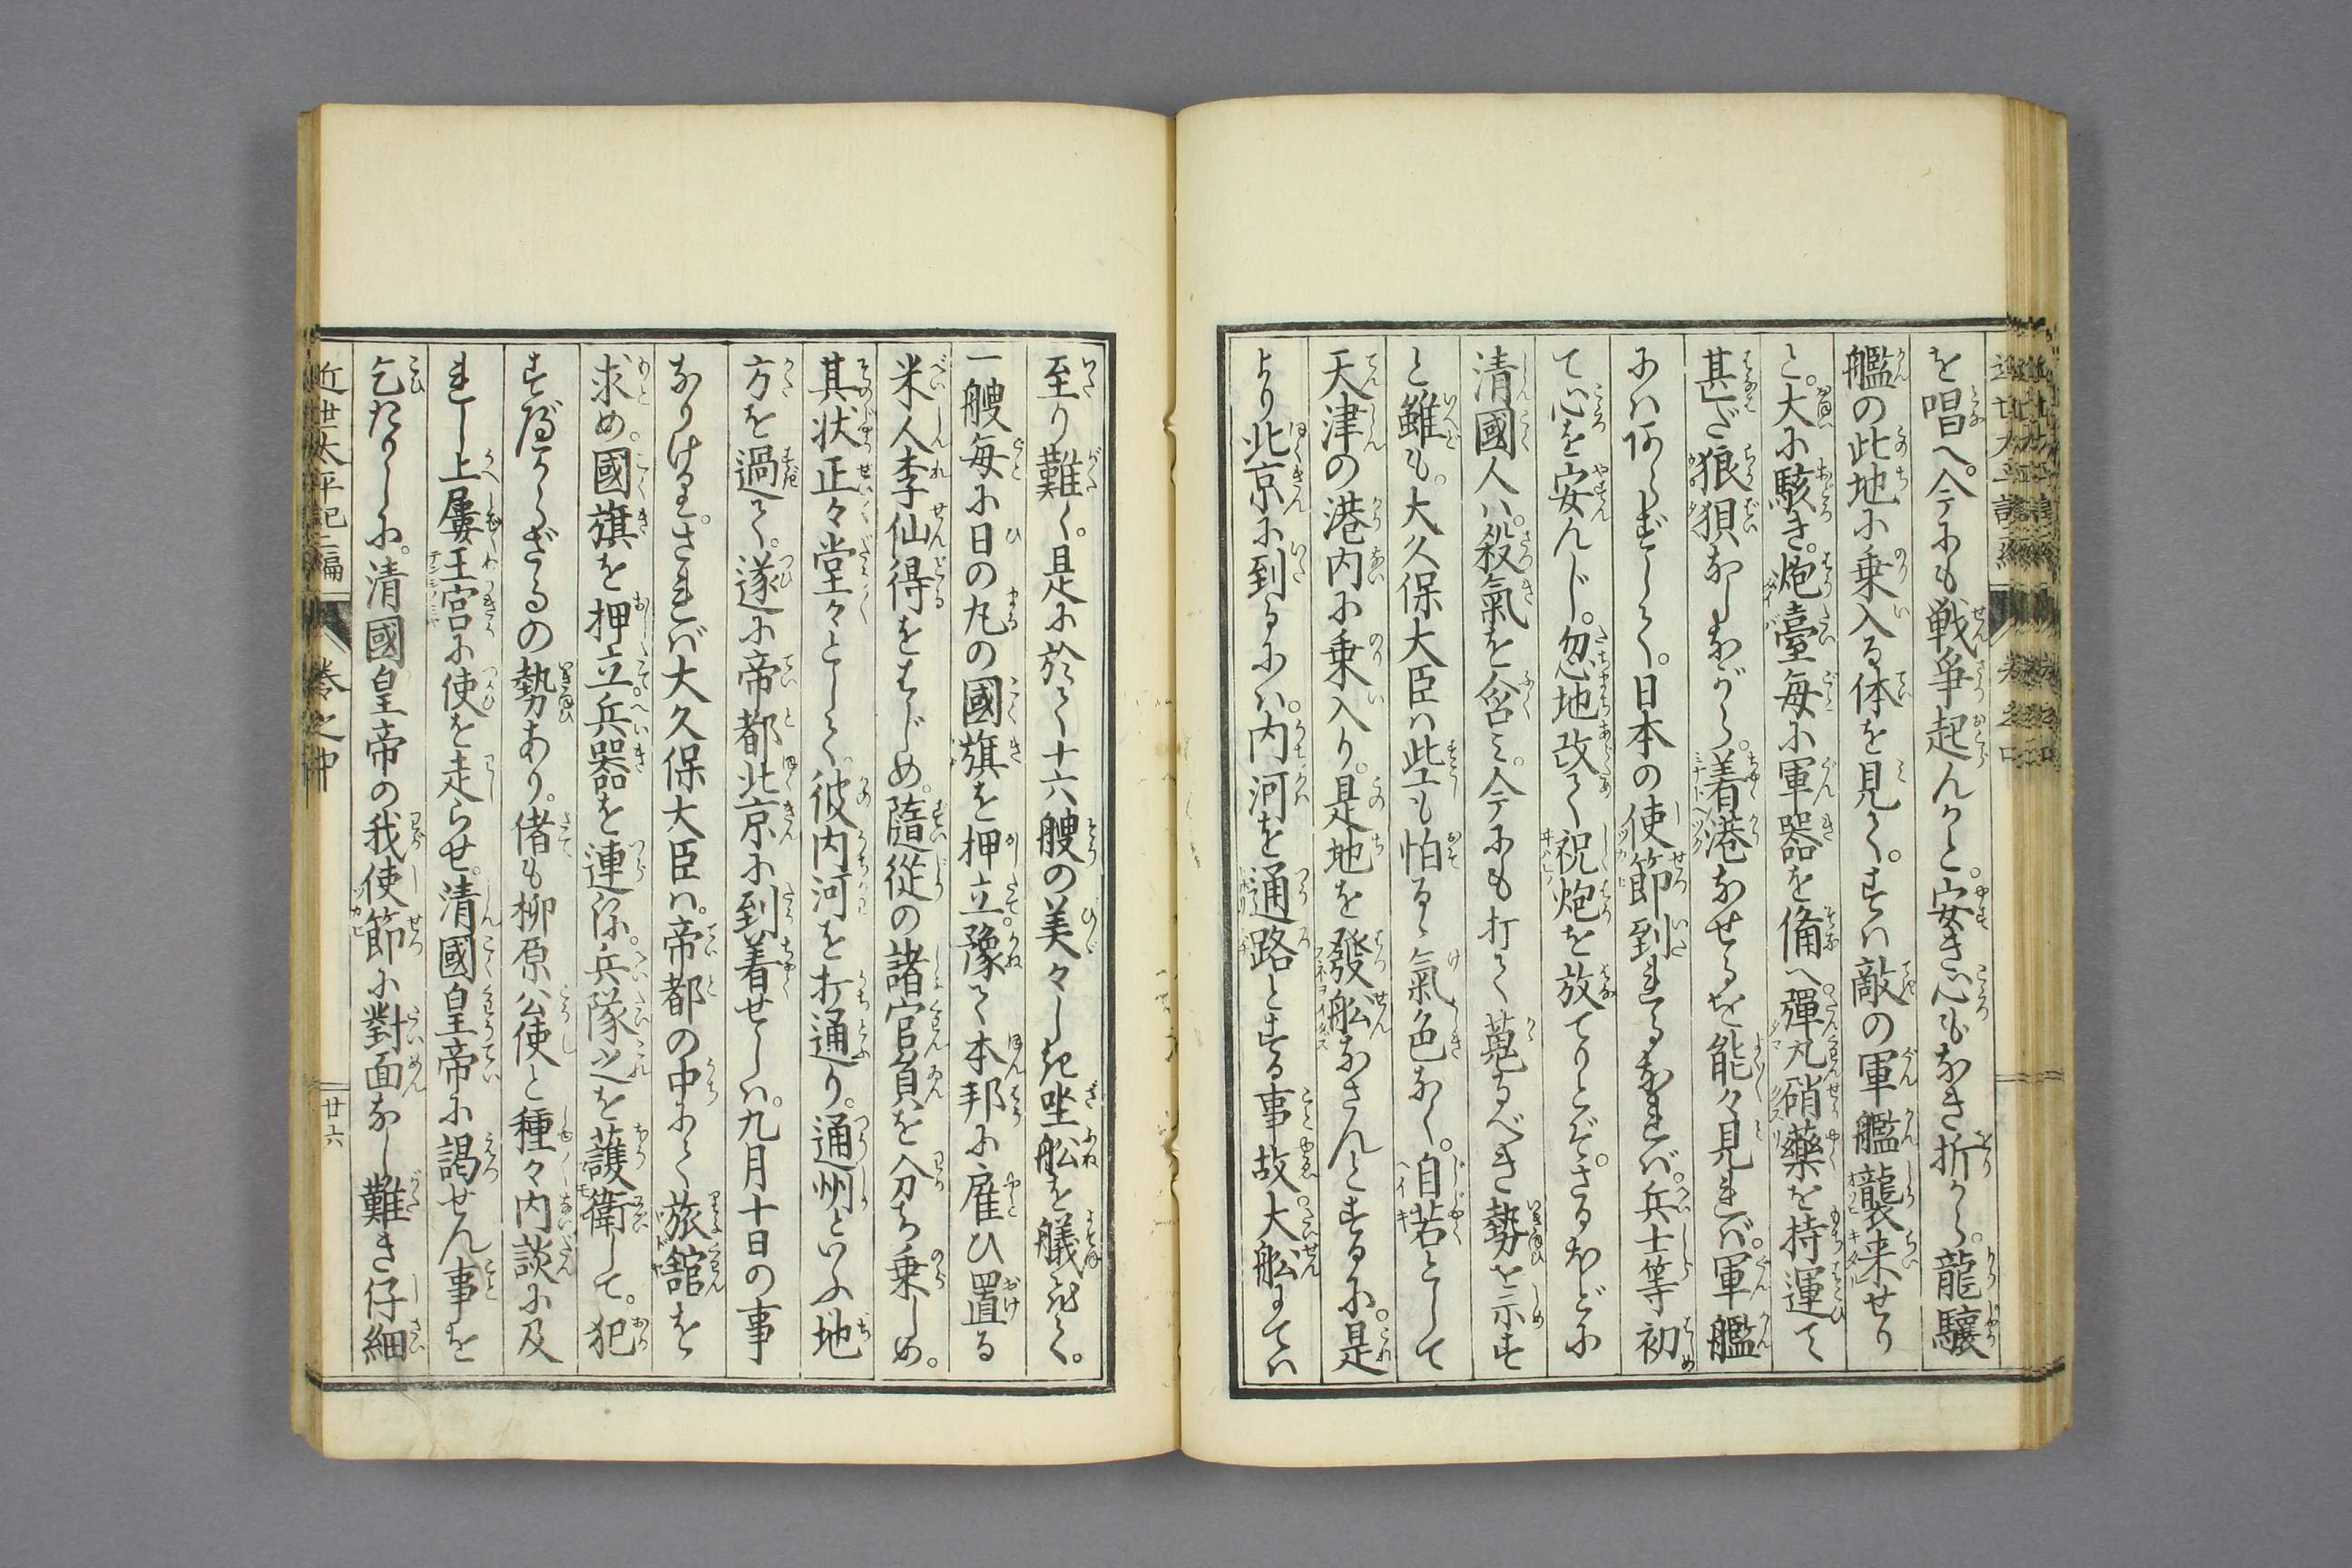 を唱へ。今にも戦爭起んかと。安き心もなき折から。龍驤
艦の此地に乗入る体を見て。すハ敵の軍艦襲来せり
と。大に駭き。炮臺毎に軍器を備へ彈丸硝藥を持運て
甚だ狼狽なしながら。着港なせるを能々見れバ。軍艦
にハあらずして。日本の使節到れるなれバ。兵士等初
て心を安んじ。忽地改て祝炮を放てりとぞ。さるほどに
清國人ハ。殺氣を含ミ。今にも打て蒐るべき勢を示す
と雖も。大久保大臣ハ些も怕るゝ氣色なく。自若として
天津の港内に乗入り。是地を發舩なさんとするに。是
より北京に到るにハ。内河を通路とする事故。大舩にてハ
至り難く。是に於て十六艘の美々しき坐舩を艤して。
一艘毎に日の丸の國旗を押立。豫て本邦に雇ひ置る
米人李仙得をはじめ。隨從の諸官員を分ち乗しめ。
其状正々堂々として。彼内河を打通り。通州といふ地
方を過て。遂に帝都北京に到着せしハ。九月十日の事
なりける。されバ大久保大臣ハ。帝都の中にて旅舘を
求め。國旗を押立。兵器を連ね。兵隊之を護衛して。犯
すべからざるの勢あり。偖も柳原公使と種々内談に及
れし上屢王宮に使を走らせ。清國皇帝に謁せん事を
乞たりしに。清國皇帝の我使節に對面なし難き仔細
近世太平記二編 巻之中 廿六